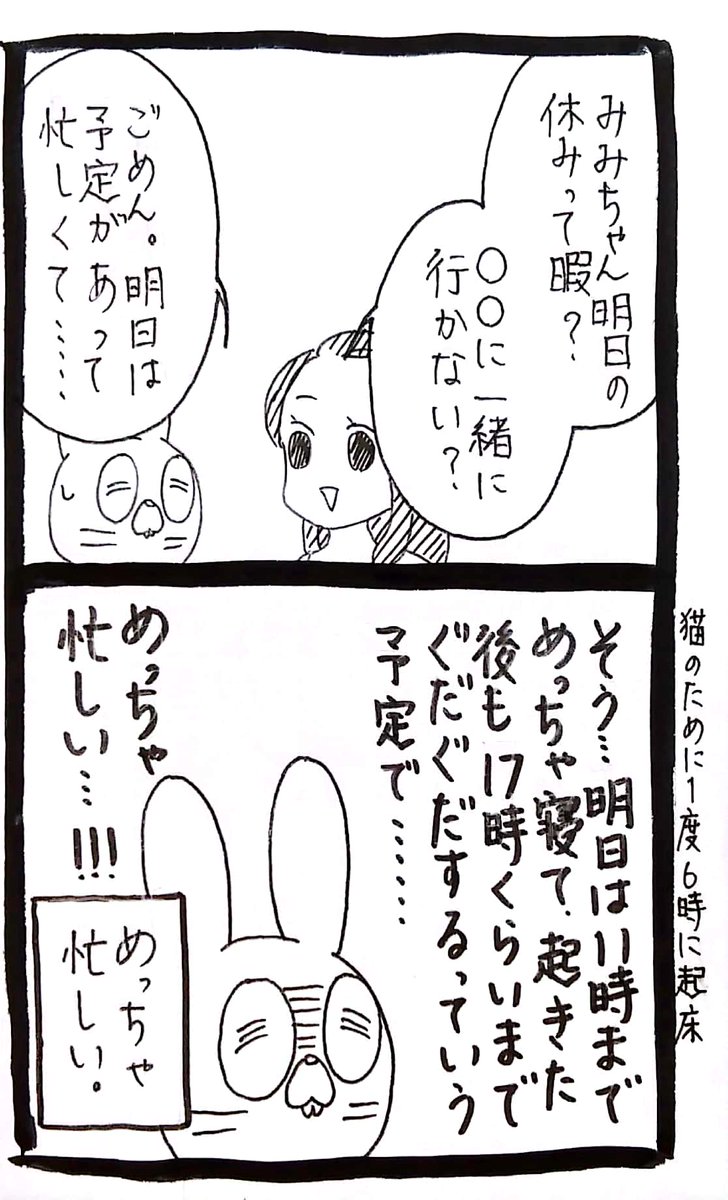 みみちゃん明日の
休みって暇？
〇〇に一緒に
行かない？
ごめん。明日は
予定があって
忙しくて……
そう…明日は11時まで
めっちゃ寝て、起きた
後も17時くらいまで
ぐだぐだするっていう
予定で……
めっちゃ
忙しい…!!!
めっちゃ
忙しい。
猫のために1度6時に起床